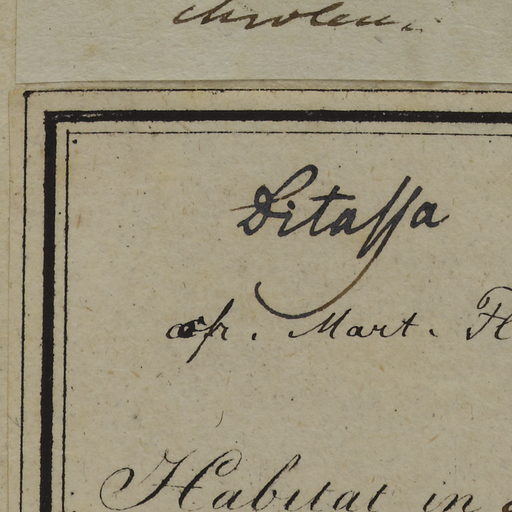 Ditassa
cfr. Mart. Fl
Habitat in